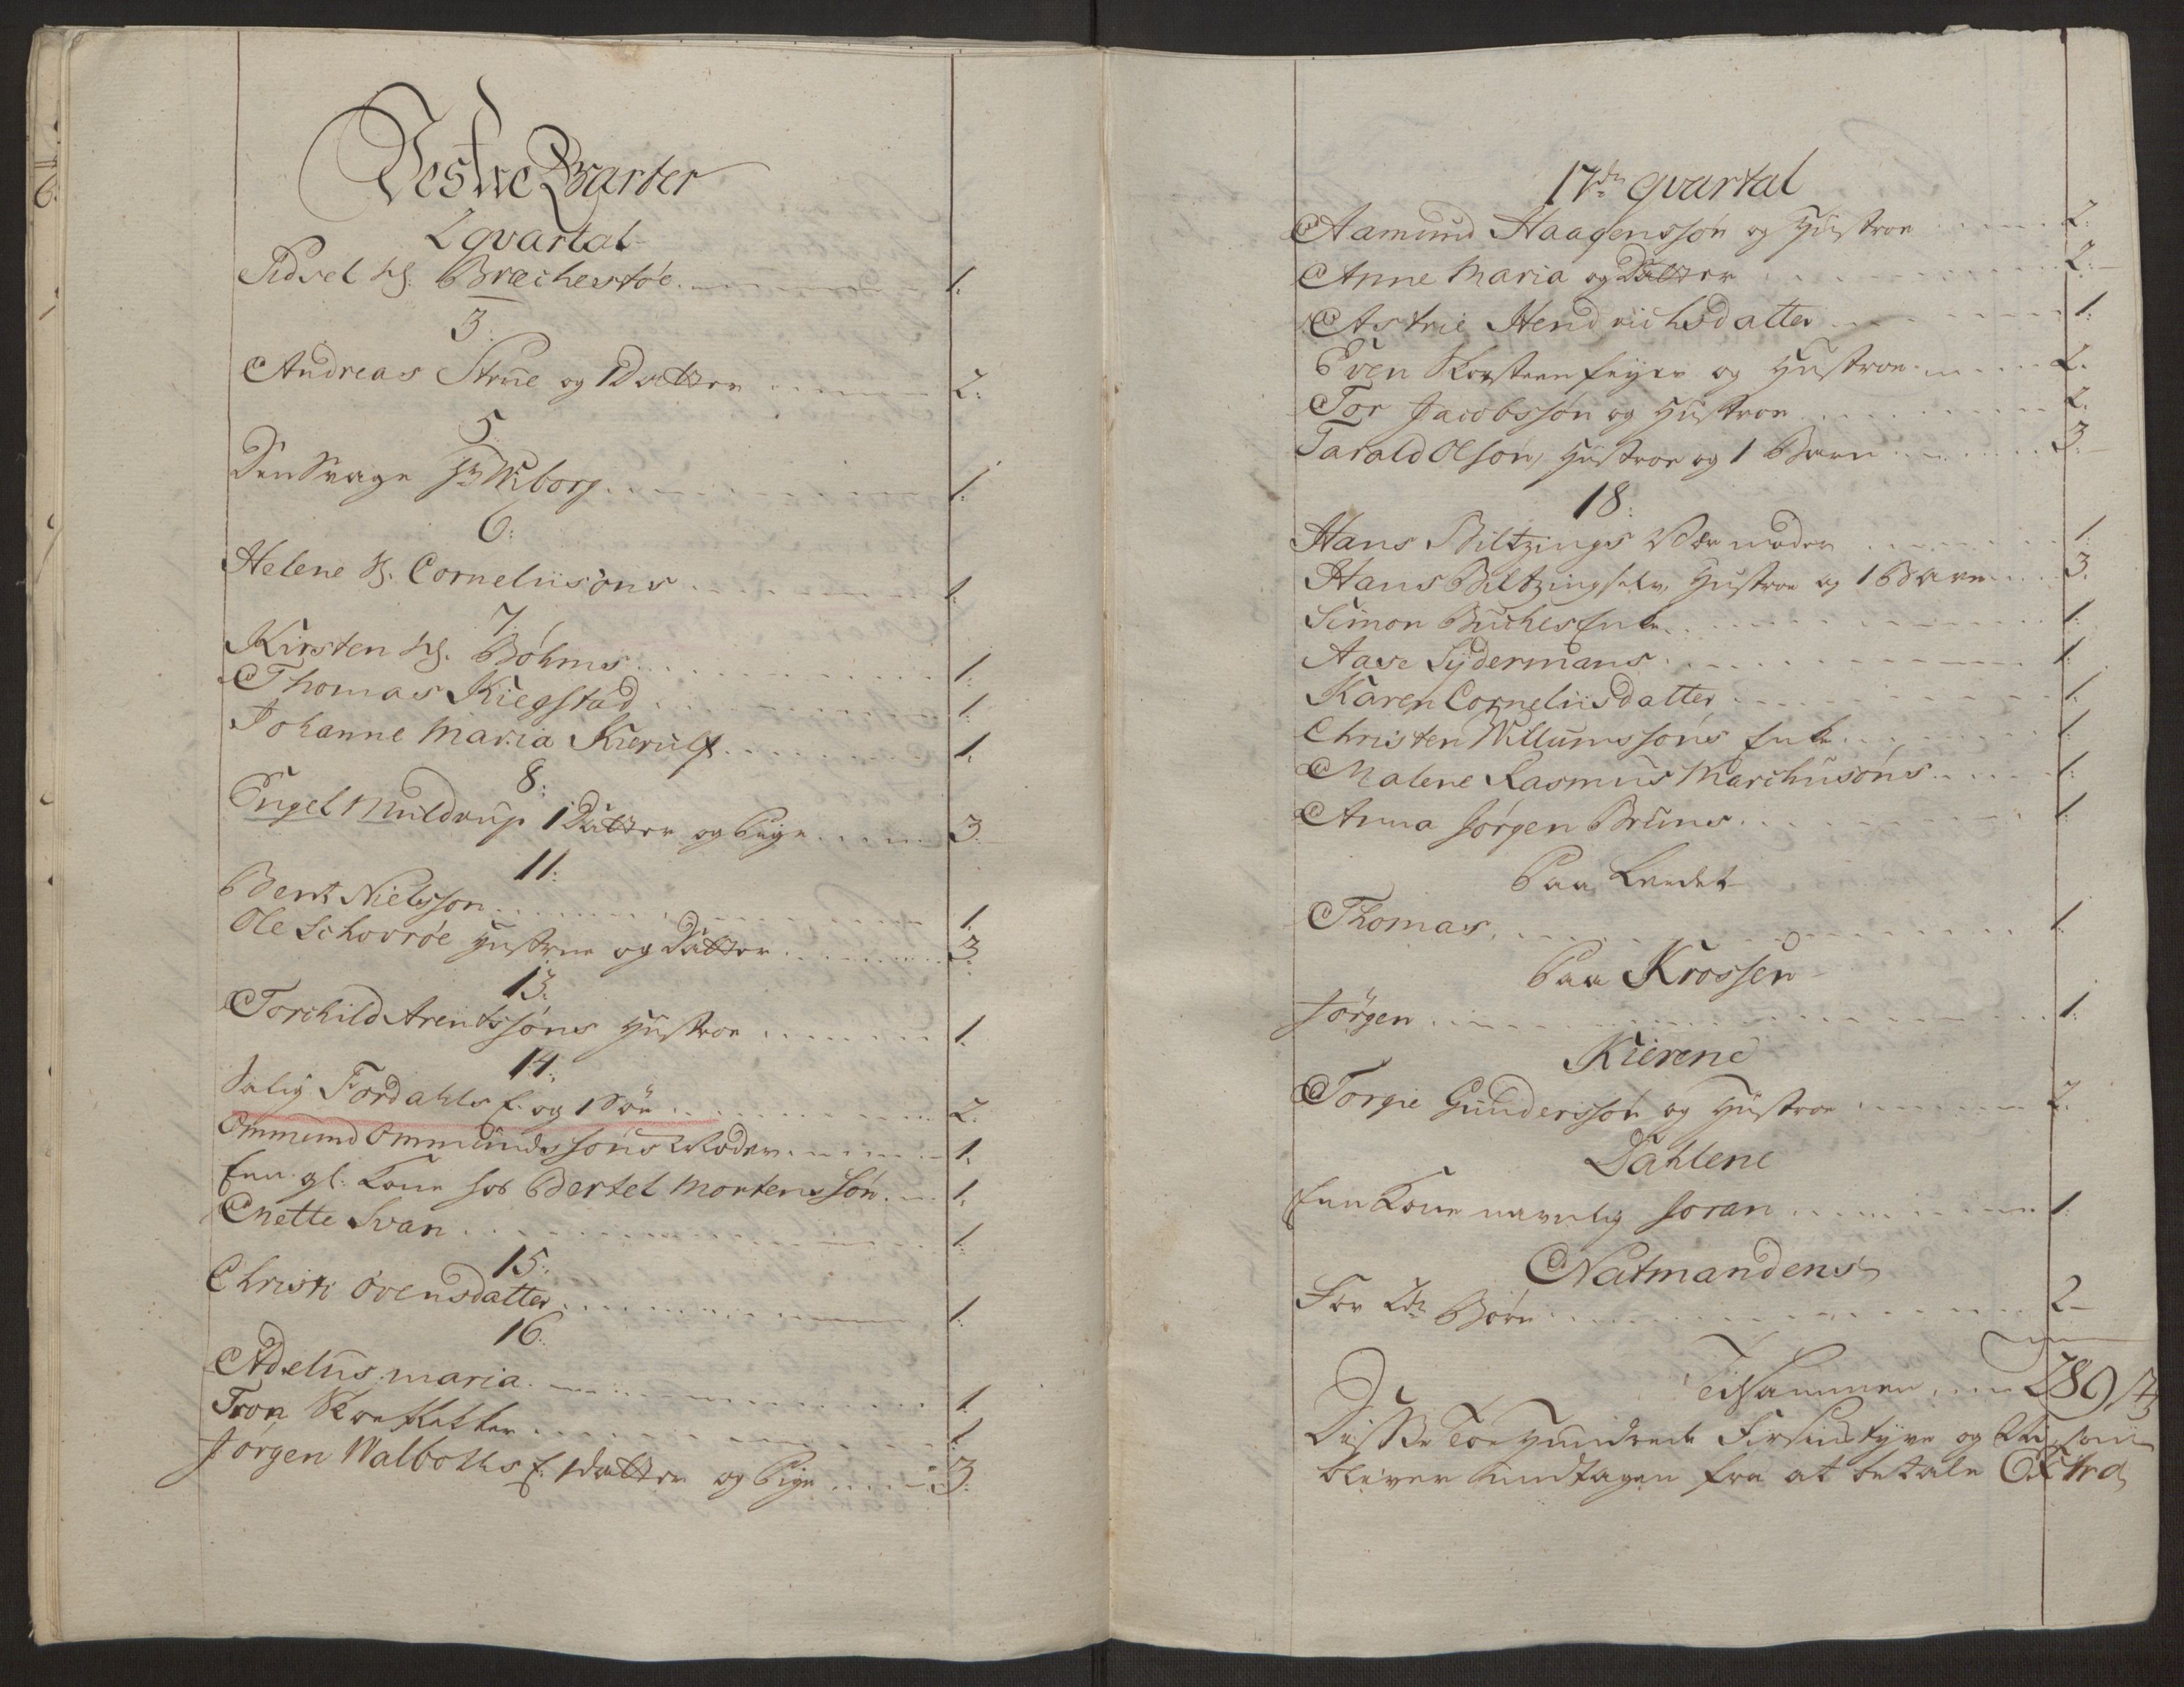 Vestre Qvarter
2 qvartal
Sidsel Sl. Brechestøe 1.
3:
Andreas Strue og 1 Datter 2:
5.
Den Svage Wiborg 1.
6:
Helene Sl. Corneliisøns 1.
7.
Kirsten Sl. Bøhms 1.
Thomas Kiegstad 1.
Johanne Maria Kierulf 1.
8:
Engel Muldrup 1 Datter og Pige 3.
11:
Bent Nielssøn 1.
Ole Schovrøe Hustrue og Datter 3.
13.
Torchild Arentssøns Hustroe 1.
14.
Salig Fordahls E. og 1 Søn 2.
Ommund Ommundssøns Moder 1.
Een gl: Kone hos Bertel Mortenssøn 1.
Mette Svan 1.
15:
Christi Ovensdatter 1.
16.
Adelus Maria 1.
Tron 1.
Jørgen Walboths E. 1 datter og Pige 3.
17de qvartal
Aamund Haagenssøn og Hustroe 2.
Anne Maria og Datter 2.
Astrie Hendrichsdatter 1.
Even Korsteenfeyer og Hustroe 2.
Tor Jacobssøn og Hustroe 2.
Tarald Olsøn, Hustroe og 1 Barn 3.
18:
Hans Biltzings Værmoder 1.
Hans Biltzing selv, Hustroe og 1 Barn 3.
Simon Buches Enke 1.
Aase Sydermans 1.
Karen Corneliisdatter 1.
Christen Willumssøns Enke 1.
Malene Rasmus Marchusøns 1.
Anna Jørgen Bruns 1.
Paa Landet
Thomas 1.
Paa Krossen
Jørgen 1.
Kierene
Torgie Gunderssøn og Hustroe 2.
Dahlene
Een Kone navnlig Joran 1.
Natmandens
For 2de Børn 2
Tilsammen 289
Disse Toe Hundrede Firsindstyve og Ni som
bliver undtagen fra at betale Extra